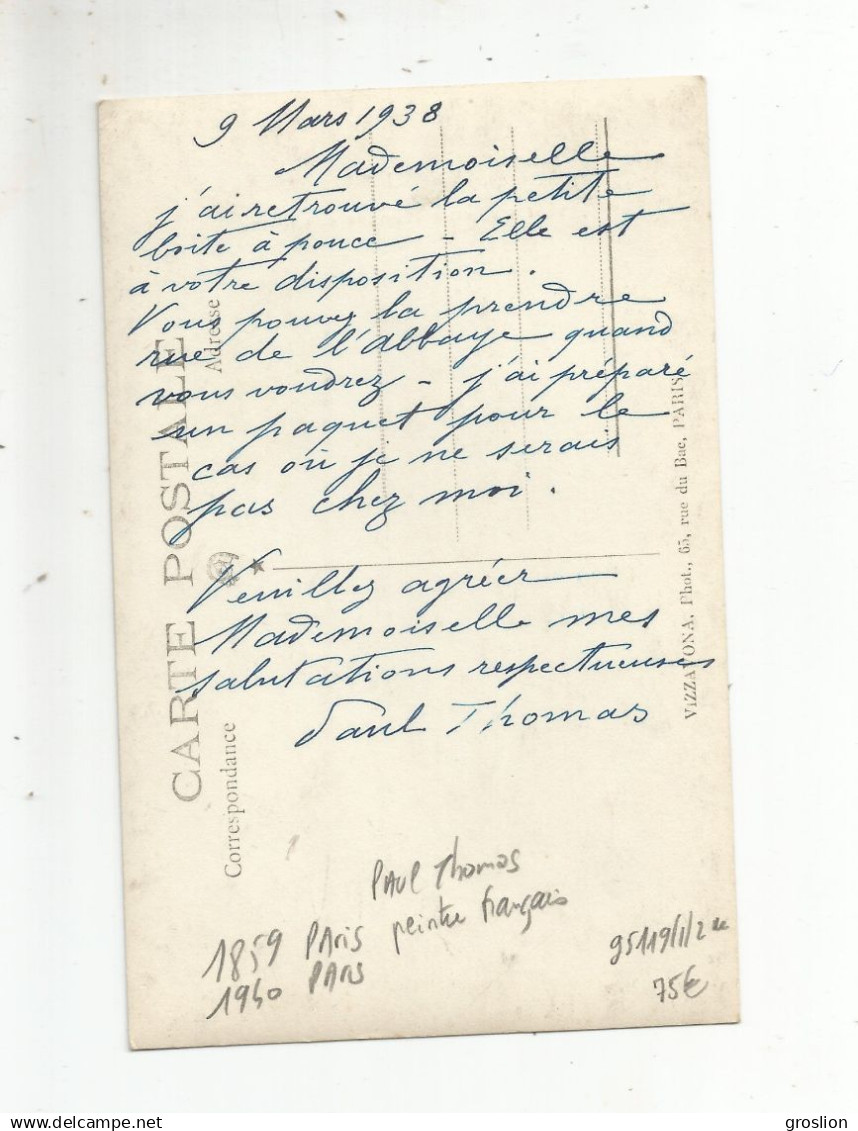 9 Mars 1938
Mademoiselle
j'ai retrouvé la petite
boite à pouce - Elle est
à votre disposition.
Vous pouvez la prendre
rue de l'abbaye quand
vous voudrez - j'ai préparé
un paquet pour le
cas où je ne serais
pas chez moi.
Veuillez agréer
Mademoiselle mes
salutations respectueuses
Paul Thomas
CARTE POSTALE
Adresse
Correspondance
VIZZAVONA, Phot., 65, rue du Bac, PARIS
PAUL Thomas
peintre français
1859 PAris
1940 PAris
95119/1/2
75€
groslion